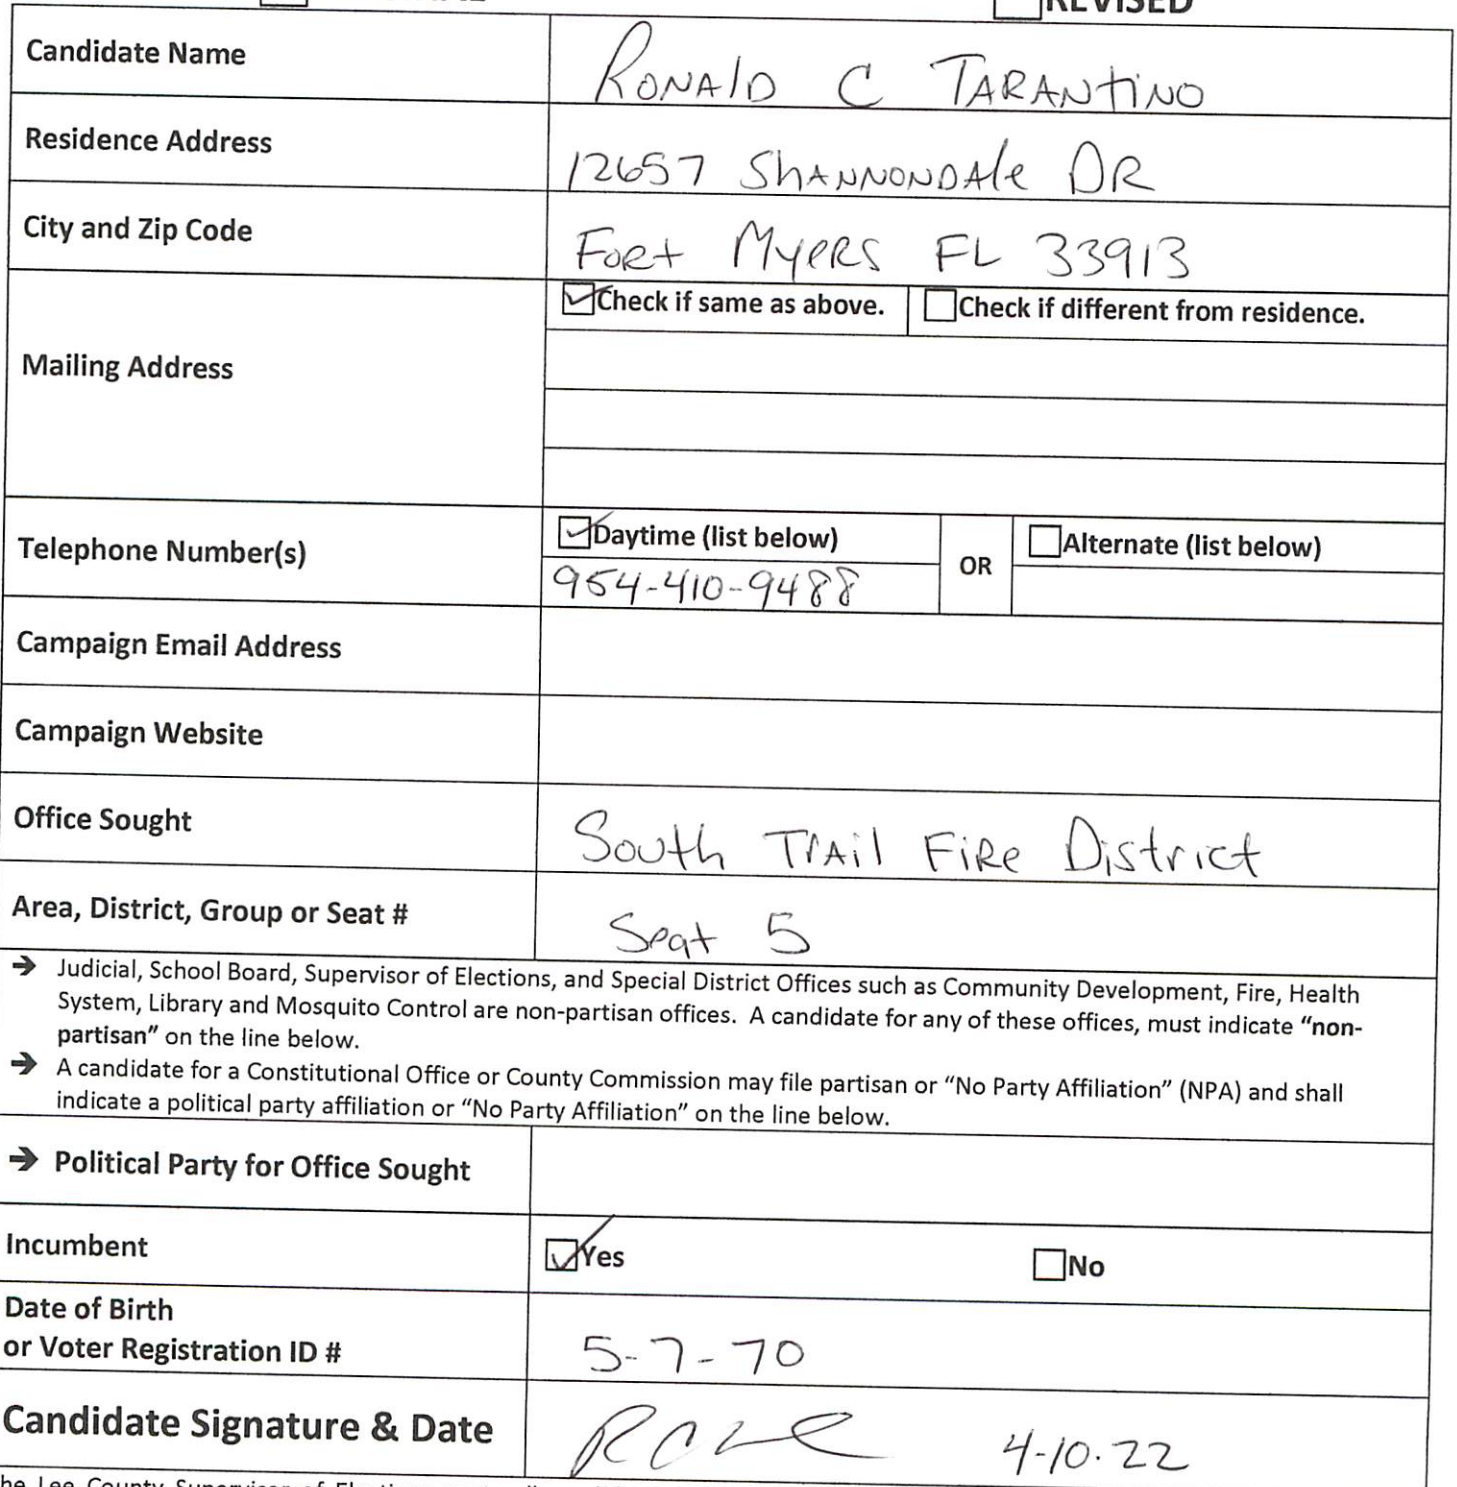 REVISED
Candidate Name
RONAlD C TARANTiNO
Residence Address
12657 ShANNONDAle DR
City and Zip Code
FoRt MyeRS FL 33913
Check if same as above.
Check if different from residence.
Mailing Address
Telephone Number(s)
Daytime (list below)
OR
Alternate (list below)
954-410-9488
Campaign Email Address
Campaign Website
Office Sought
South TrAil FiRe District
Area, District, Group or Seat #
Seat 5
→ Judicial, School Board, Supervisor of Elections, and Special District Offices such as Community Development, Fire, Health
System, Library and Mosquito Control are non-partisan offices. A candidate for any of these offices, must indicate “non-
partisan” on the line below.
→ A candidate for a Constitutional Office or County Commission may file partisan or “No Party Affiliation” (NPA) and shall
indicate a political party affiliation or “No Party Affiliation” on the line below.
→ Political Party for Office Sought
Incumbent
Yes
No
Date of Birth
or Voter Registration ID #
5-7-70
Candidate Signature & Date
4-10.22